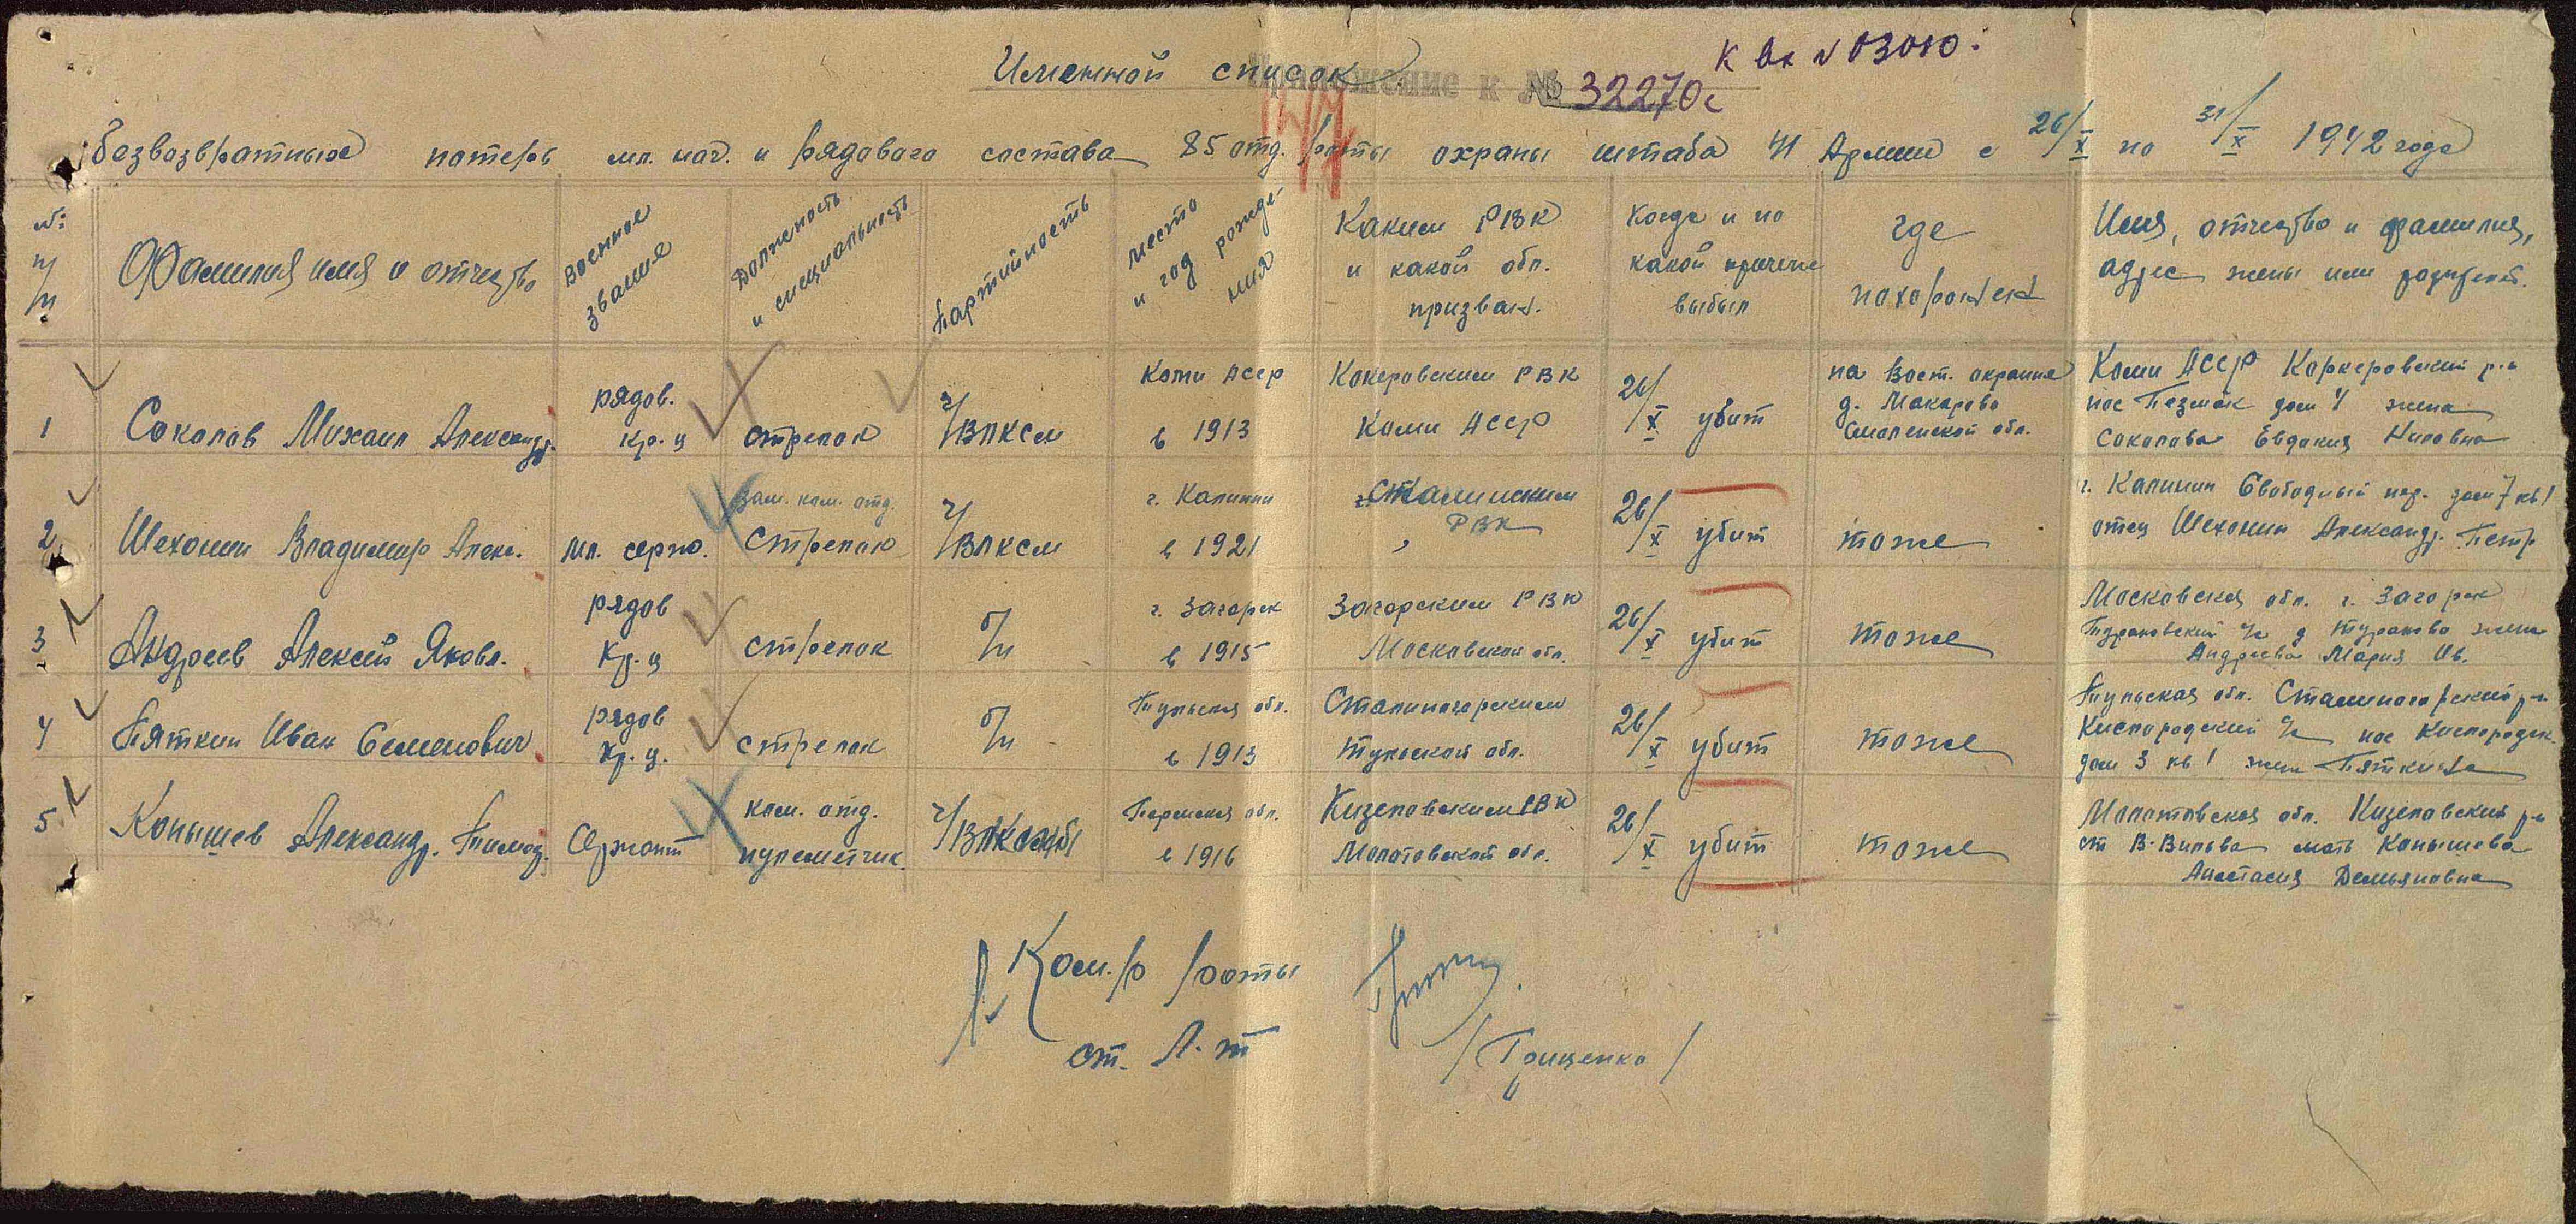 Именной список
Приложение к № 32270с
к вх N 03010.
безвозвратных потерь мл. нач. и рядового состава 85 отд. роты охраны штаба 41 Армии с 26/X по 31/X 1942 года
№: п/п
Фамилия имя и отчество
Военное звание
Должность и специальность
Партийность
место и год рождения
Каким РВК и какой обл. призван.
Когда и по какой причине выбыл
где похоронен
Имя, отчество и фамилия, адрес жены или родителей.
1 Соколов Михаил Александр. рядов. кр-ц стрелок ч/ВЛКСМ Коми АССР в 1913 Кокеровским РВК Коми АССР 26/X убит на Вост. окраине д. Макарово Смоленской обл. Коми АССР Коркеровский р-н пос Пезмок дом 4 жена Соколова Евдокия Ниловна
2 Шехонин Владимир Алекс. мл. серж. Зам. ком. отд. стрелок ч/ВЛКСМ г. Калинин в 1921 Сталинским РВК 26/X убит тоже г. Калинин Свободный пер. дом 7 кв 1 отец Шехонин Александр. Петр
3 Андреев Алексей Яковл. рядов Кр-ц стрелок б/п г. Загорск в 1915 Загорским РВК Московской обл. 26/X убит тоже Московская обл. г. Загорск Тураковский с/с д Тураково жена Андреева Мария Ив.
4 Пяткин Иван Семенович рядов Кр-ц. стрелок б/п Тульская обл. в 1913 Сталиногорским Тульской обл. 26/X убит тоже Тульская обл. Сталиногорский р-н Кислородский с/с пос Кислородск. дом 3 кв 1 жена Пяткина
5 Конышев Александр. Тимоф. Сержант ком. отд. пулеметчик. Пермская обл. в 1916 Кизеловским РВК Молотовской обл. 26/X убит тоже Молотовская обл. Кизеловский р-н ст В-Вильва мать Конышева Анастасия Демьяновна
Ком-р роты
ст. Л-т
/Гриценко/